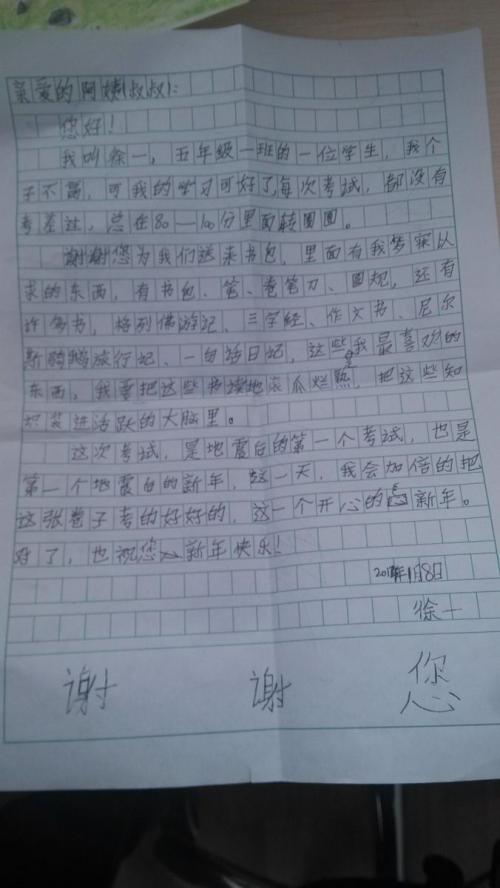 亲爱的阿姨(叔叔):
您好!
我叫徐一,五年级一班的一位学生,我个
子不高,可我的学习可好了,每次考试,都没有
考差过,总在80—100分里面转圈圈。
谢谢您为我们送来书包,里面有我梦寐以
求的东西,有书包、笔、卷笔刀、圆规,还有
许多书,格列佛游记、三字经、作文书、尼尔
斯骑鹅旅行记、一百话日记,这些我最喜欢的
东西,我要把这些书读地滚瓜烂熟,把这些知
识装进活跃的大脑里。
这次考试,是地震后的第一个考试,也是
第一个地震后的新年,这一天,我会加倍的把
这张卷子考的好好的,这一个开心的新年。
好了,也祝您新年快乐!
年1月8日
徐一
谢 谢 您